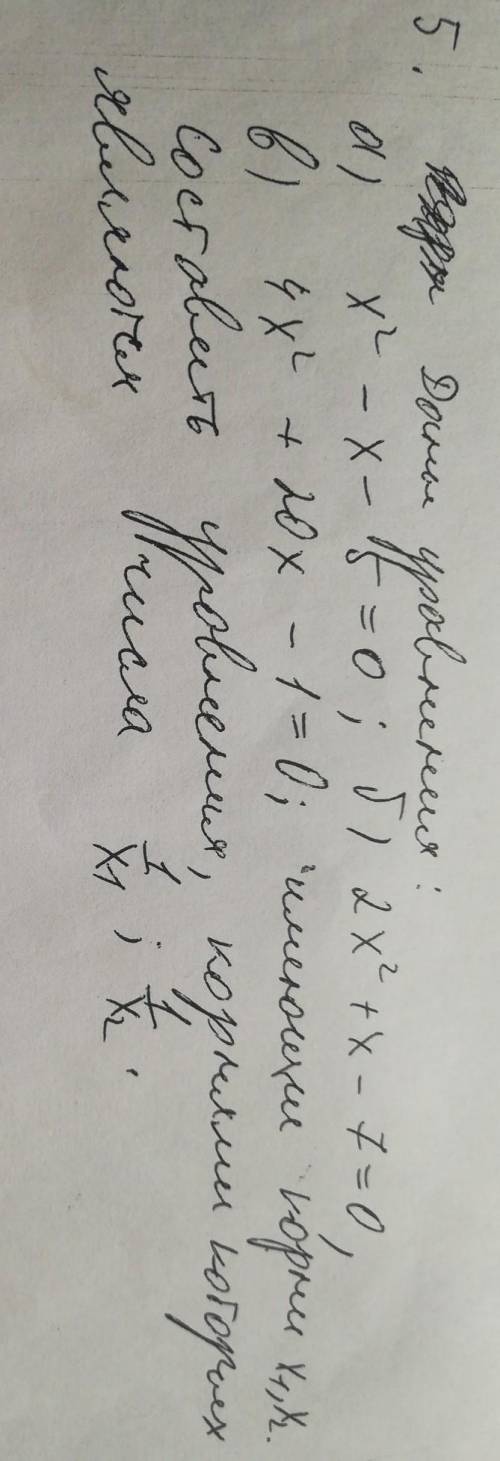 5. Даны уравнения:
а) x² - x - 5 = 0; б) 2x² + x - 7 = 0,
в) 4x² + 20x - 1 = 0; имеющие корни x₁, x₂.
Составить уравнения, корнями которых
являются числа 1/x₁ ; 1/x₂.